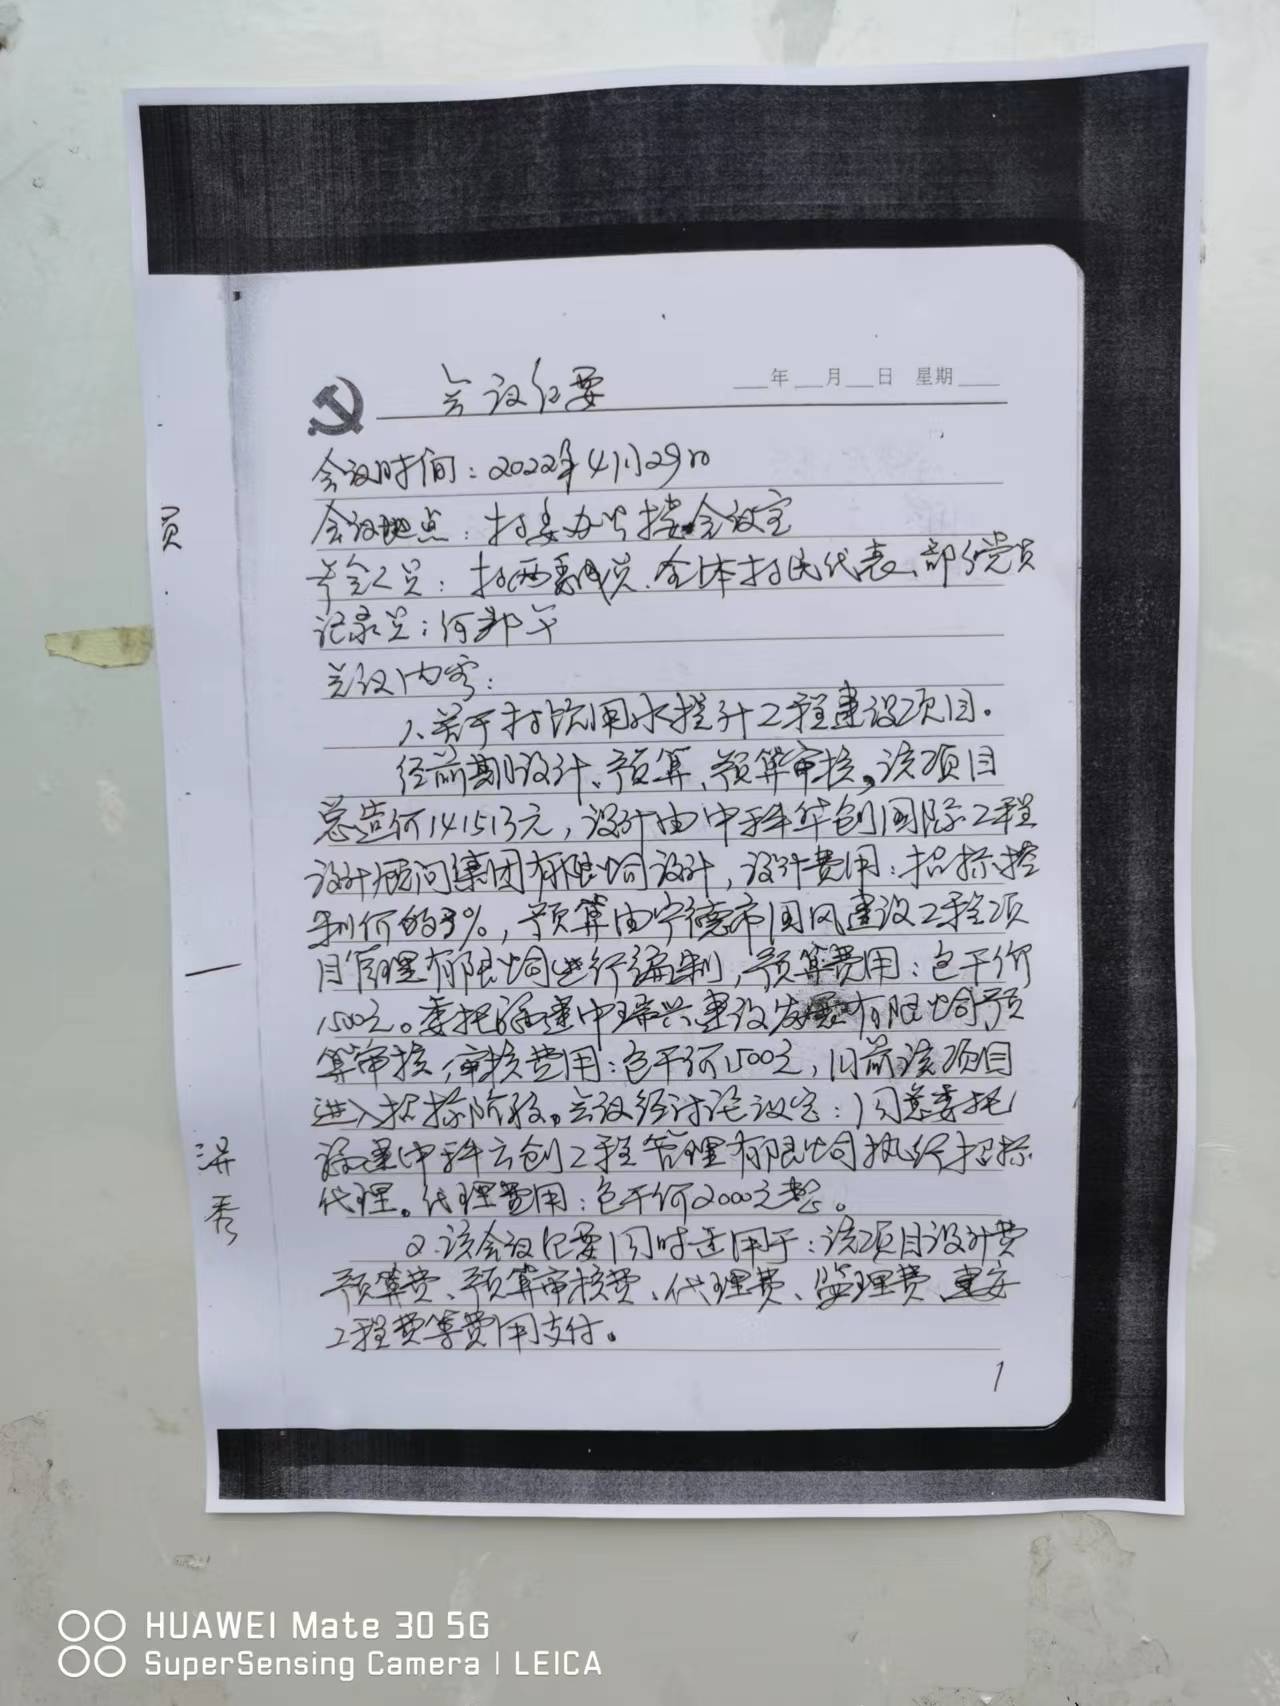 会议纪要
年 月 日 星期
会议时间：2022年4月29日
会议地点：村委办公楼会议室
参会人员：村两委成员、全体村民代表、部分党员
员
记录员：何邦午
会议内容：
1、关于村饮用水提升工程建设项目。
经前期设计、预算、预算审核，该项目
总造价141513元，设计由中科华创国际工程
设计顾问集团有限公司设计，设计费用：招标控
制价的3%，预算由宁德市国风建设工程项
目管理有限公司进行编制，预算费用：包干价
1500元。委托福建中瑞兴建设发展有限公司预
算审核，审核费用：包干价1500元，目前该项目
进入招标阶段。会议经讨论议定：同意委托
福建中科云创工程管理有限公司执行招标
代理。代理费用：包干价2000元整。
秀
2、该会议纪要同时适用于：该项目设计费
预算费、预算审核费、代理费、监理费、建安
工程费等费用支付。
1
HUAWEI Mate 30 5G
SuperSensing Camera | LEICA